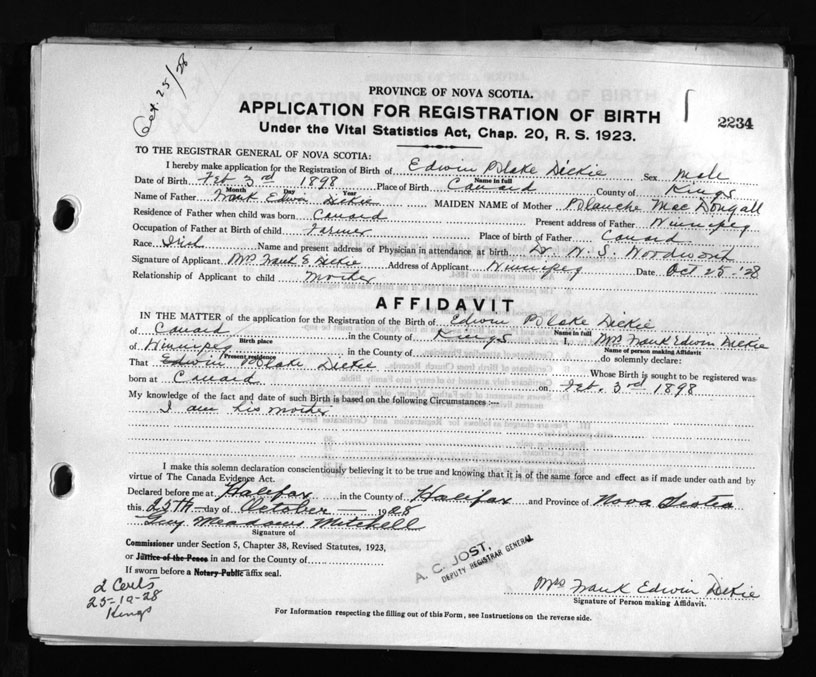 Oct. 25/28
PROVINCE OF NOVA SCOTIA.
APPLICATION FOR REGISTRATION OF BIRTH
2234
Under the Vital Statistics Act, Chap. 20, R. S. 1923.
TO THE REGISTRAR GENERAL OF NOVA SCOTIA:
I hereby make application for the Registration of Birth of Edwin Blake Dickie Sex male
Name in full
Date of Birth Feb 3rd 1898 Place of Birth Canard County of Kings
Month Day Year
Name of Father Frank Edwin Dickie MAIDEN NAME of Mother Blanche MacDougall
Residence of Father when child was born Canard Present address of Father Winnipeg
Occupation of Father at Birth of child Farmer Place of birth of Father Canard
Race Irish Name and present address of Physician in attendance at birth Dr. W. S. Woodworth
Signature of Applicant Mrs Frank E Dickie Address of Applicant Winnipeg Date Oct 25 '28
Relationship of Applicant to child Mother
AFFIDAVIT
IN THE MATTER of the application for the Registration of the Birth of Edwin Blake Dickie
Name in full
of Canard in the County of Kings I, Mrs Frank Edwin Dickie
Birth place Name of person making Affidavit
of Winnipeg in the County of do solemnly declare:
Present residence
That Edwin Blake Dickie Whose Birth is sought to be registered was
born at Canard on Feb. 3rd 1898
My knowledge of the fact and date of such Birth is based on the following Circumstances :—
I am his mother
I make this solemn declaration conscientiously believing it to be true and knowing that it is of the same force and effect as if made under oath and by
virtue of The Canada Evidence Act.
Declared before me at Halifax in the County of Halifax and Province of Nova Scotia
this 25th day of October 1928
Guy Meadows Mitchell
Signature of
Commissioner under Section 5, Chapter 38, Revised Statutes, 1923,
or Justice of the Peace in and for the County of
If sworn before a Notary Public affix seal.
A. C. JOST,
DEPUTY REGISTRAR GENERAL
Mrs Frank Edwin Dickie
Signature of Person making Affidavit.
2 Certs
25-10-28
Kings
For Information respecting the filling out of this Form, see Instructions on the reverse side.